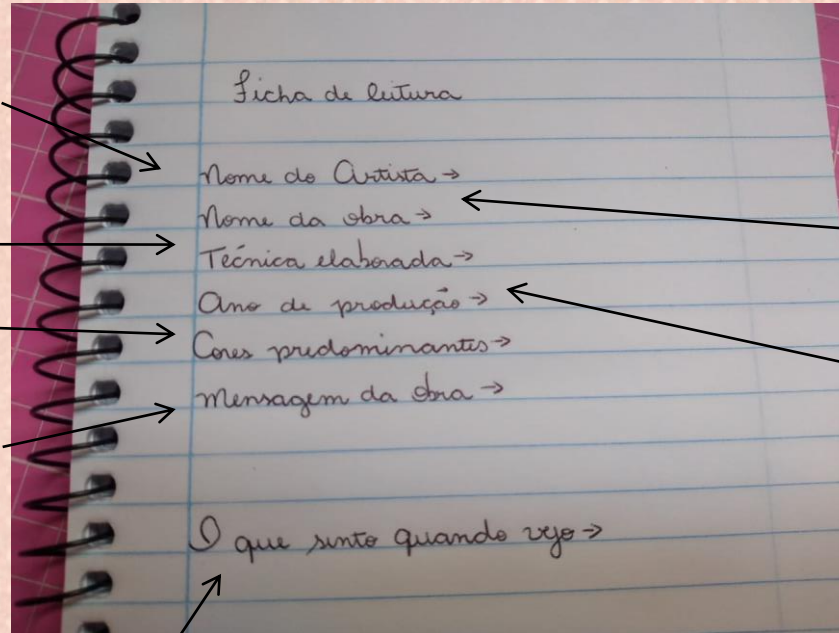 Ficha de leitura
Nome do Artista →
Nome da obra →
Tecnica elaborada →
Ano de produção →
Cores predominantes →
Mensagem da obra →
O que sinto quando vejo →